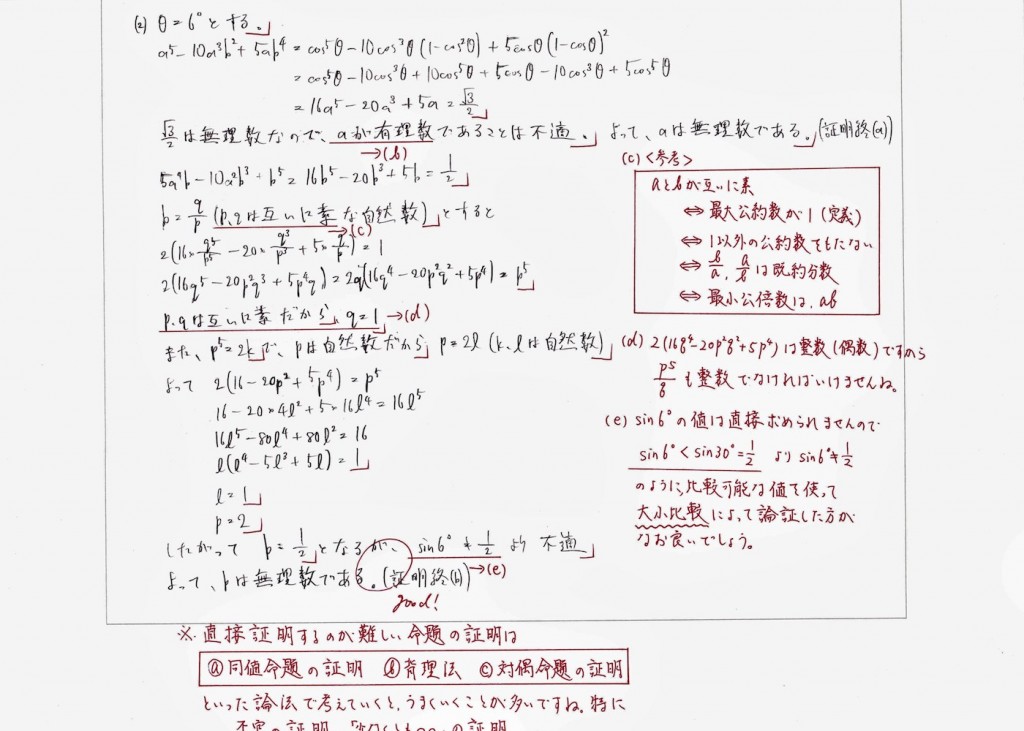 (2) θ=6°とする。
a⁵-10a³b²+5ab⁴ = cos⁵θ-10cos³θ(1-cos²θ)+5cosθ(1-cosθ)²
= cos⁵θ-10cos³θ+10cos⁵θ+5cosθ-10cos³θ+5cos⁵θ
= 16a⁵-20a³+5a = √3/2
√3/2は無理数なので、aが有理数であることは不適。よって、aは無理数である。(証明終(a))
→(b)
5a⁴b-10a²b³+b⁵ = 16b⁵-20b³+5b = 1/2
b = q/p (p,qは互いに素な自然数)とすると
→(c)
2(16×q⁵/p⁵-20×q³/p³+5×q/p) = 1
2(16q⁵-20p²q³+5p⁴q) = 2q(16q⁴-20p²q²+5p⁴) = p⁵
p,qは互いに素だから、q=1 →(d)
また、p⁵=2kで、pは自然数だから p=2l (k,lは自然数)
よって 2(16-20p²+5p⁴) = p⁵
16-20×4l²+5×16l⁴ = 16l⁵
16l⁵-80l⁴+80l² = 16
l(l⁴-5l³+5l) = 1
l = 1
p = 2
したがって b = 1/2 となるが、sin6°≠1/2 より 不適
よって、bは無理数である。(証明終(b)) →(e)
good!
(c)<参考>
aとbが互いに素
⇔ 最大公約数が1(定義)
⇔ 1以外の公約数をもたない
⇔ b/a, a/b は既約分数
⇔ 最小公倍数は、ab
(d) 2(16q⁴-20p²q²+5p⁴)は整数(偶数)ですから
p⁵/q も整数でなければいけませんね。
(e) sin6°の値は直接求められませんので
sin6°<sin30°=1/2 より sin6°≠1/2
のように、比較可能な値を使って
大小比較によって論証した方が
なお良いでしょう。
※ 直接証明するのが難しい命題の証明は
ⓐ同値命題の証明 ⓑ背理法 ⓒ対偶命題の証明
といった論法で考えていくと、うまくいくことが多いですね。特に
の証明、「少なくとも○○」の証明